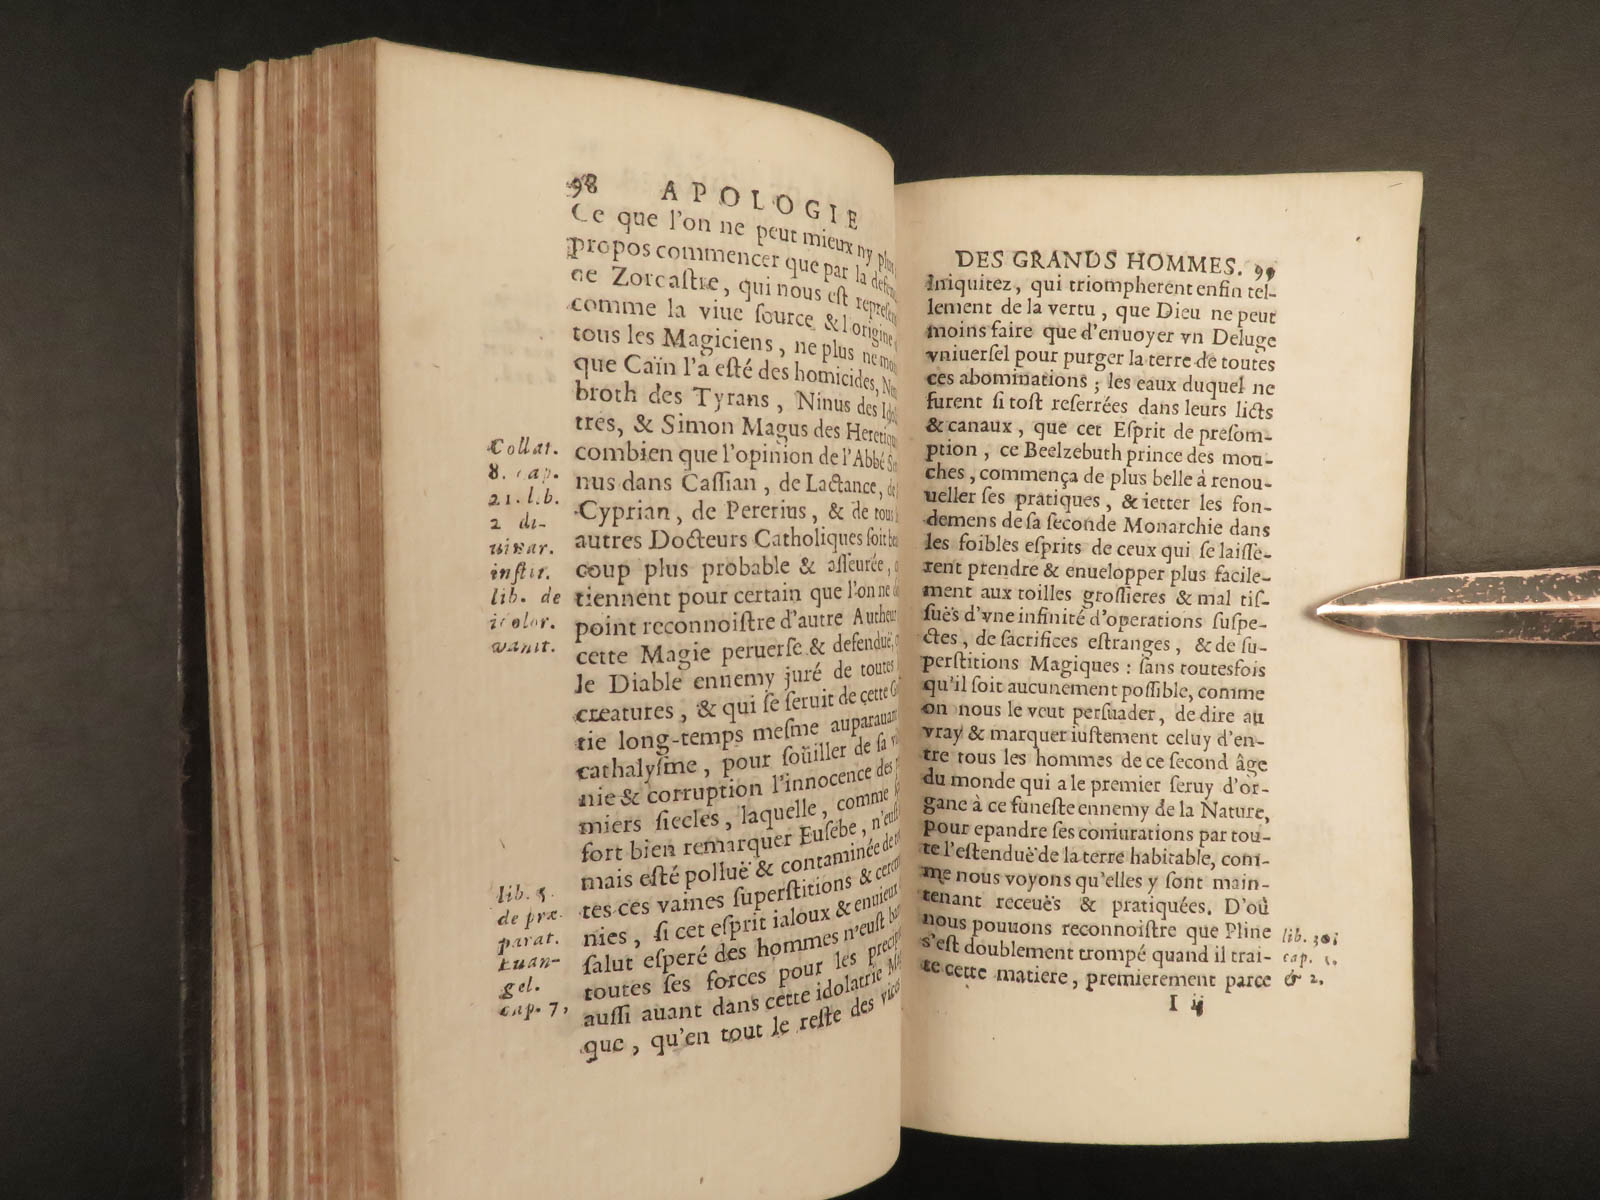 98 APOLOGIE
Ce que l'on ne peut mieux ny
propos commencer que par la
de Zoroaſtre, qui nous eſt
comme la viue ſource & l'origine
tous les Magiciens, ne plus ne
que Caïn l'a eſté des homicides,
broth des Tyrans, Ninus des
tres, & Simon Magus des
combien que l'opinion de l'Abbé
nus dans Caſſian, de Lactance,
Cyprian, de Pererius, & de tous
autres Docteurs Catholiques ſoit
coup plus probable & aſſeurée,
tiennent pour certain que l'on ne
point reconnoiſtre d'autre
cette Magie peruerſe & defenduë,
le Diable ennemy juré de toutes
creatures, & qui ſe ſeruit de cette
rie long-temps meſme
cathalyſme, pour ſoüiller de ſa
nie & corruption l'innocence des
miers ſiecles, laquelle, comme
fort bien remarquer Euſebe,
mais eſté polluë & contaminée de
tes ces vaines ſuperſtitions &
nies, ſi cet eſprit ialoux & enuieux
ſalut eſperé des hommes n'euſt
toutes ſes forces pour les
auſſi auant dans cette idolatrie
que, qu'en tout le reſte des
Collat.
8. cap.
21. lib.
2 di-
uinar.
inſtit.
lib. de
idolor.
vanit.
lib. 5.
de præ-
parat.
Euan-
gel.
cap. 7,
DES GRANDS HOMMES. 99
iniquitez, qui triompherent enfin tel-
lement de la vertu, que Dieu ne peut
moins faire que d'enuoyer vn Deluge
vniuerſel pour purger la terre de toutes
ces abominations ; les eaux duquel ne
furent ſi toſt reſerrées dans leurs licts
& canaux, que cet Eſprit de preſom-
ption, ce Beelzebuth prince des mou-
ches, commença de plus belle à renou-
ueller ſes pratiques, & ietter les fon-
demens de ſa ſeconde Monarchie dans
les foibles eſprits de ceux qui ſe laiſſe-
rent prendre & enuelopper plus facile-
ment aux toilles groſſieres & mal tiſ-
ſuës d'vne infinité d'operations ſuſpe-
ctes, de ſacrifices eſtranges, & de ſu-
perſtitions Magiques : ſans toutesfois
qu'il ſoit aucunement poſſible, comme
on nous le veut perſuader, de dire au
vray & marquer iuſtement celuy d'en-
tre tous les hommes de ce ſecond âge
du monde qui a le premier ſeruy d'or-
gane à ce funeſte ennemy de la Nature,
pour epandre ſes coniurations par tou-
te l'eſtenduë de la terre habitable, com-
me nous voyons qu'elles y ſont main-
tenant receuës & pratiquées. D'où
nous pouuons reconnoiſtre que Pline
s'eſt doublement trompé quand il trai-
te cette matiere, premierement parce
I ij
lib. 30.
cap. 1.
& 2.